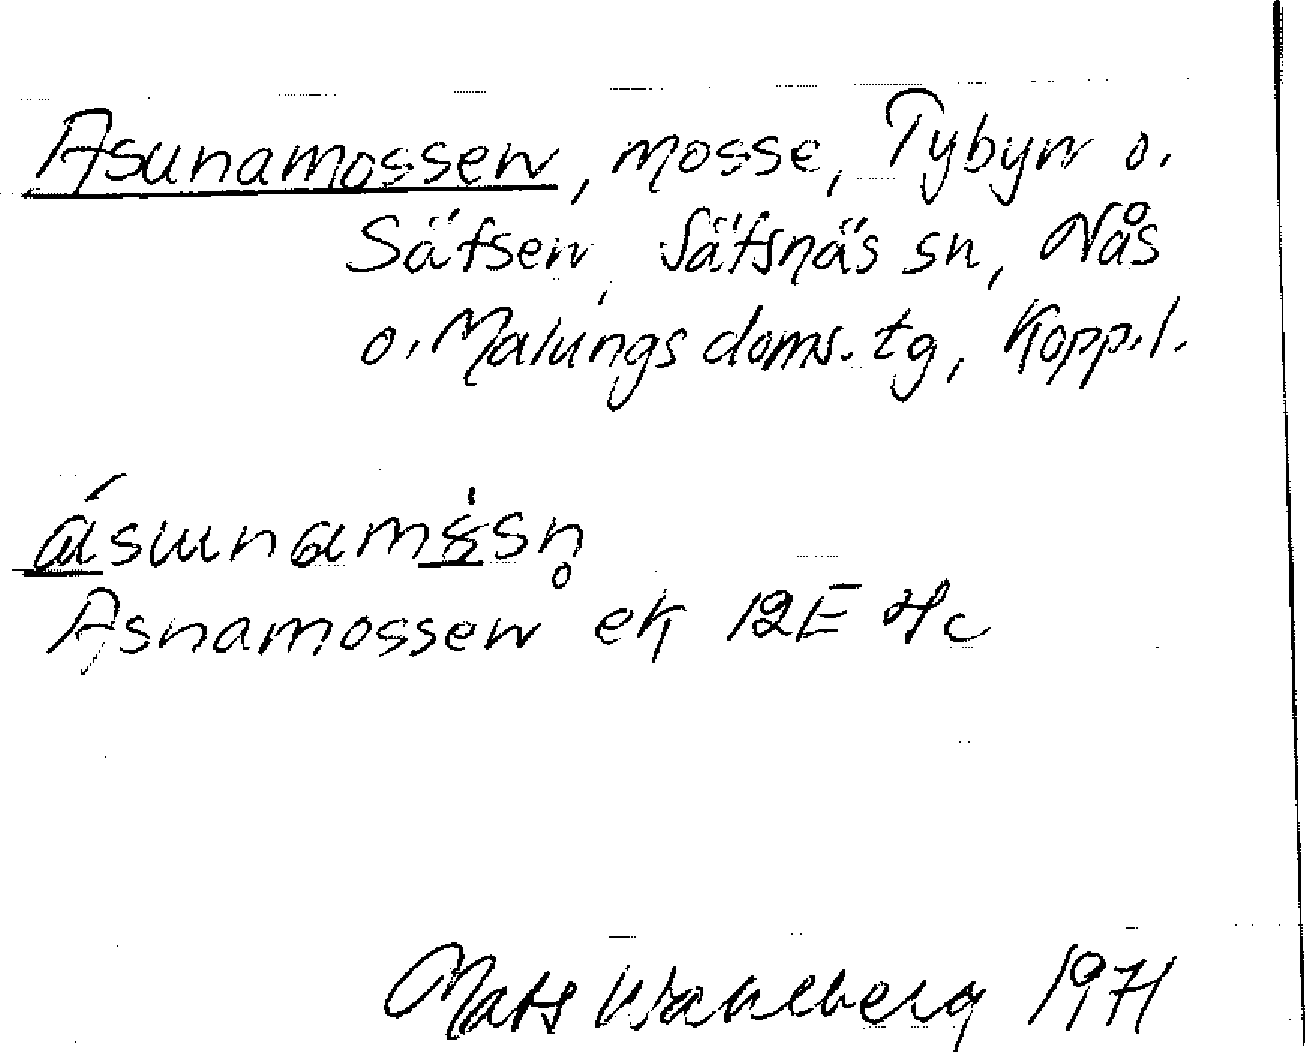 Asunamossen, mosse, Tybyn o.
Säfsen, Säfsnäs sn, Nås
o. Malungs doms. tg, Kopp.l.
Asnamossen ek 12E 4c
Mats Wahlberg 1971